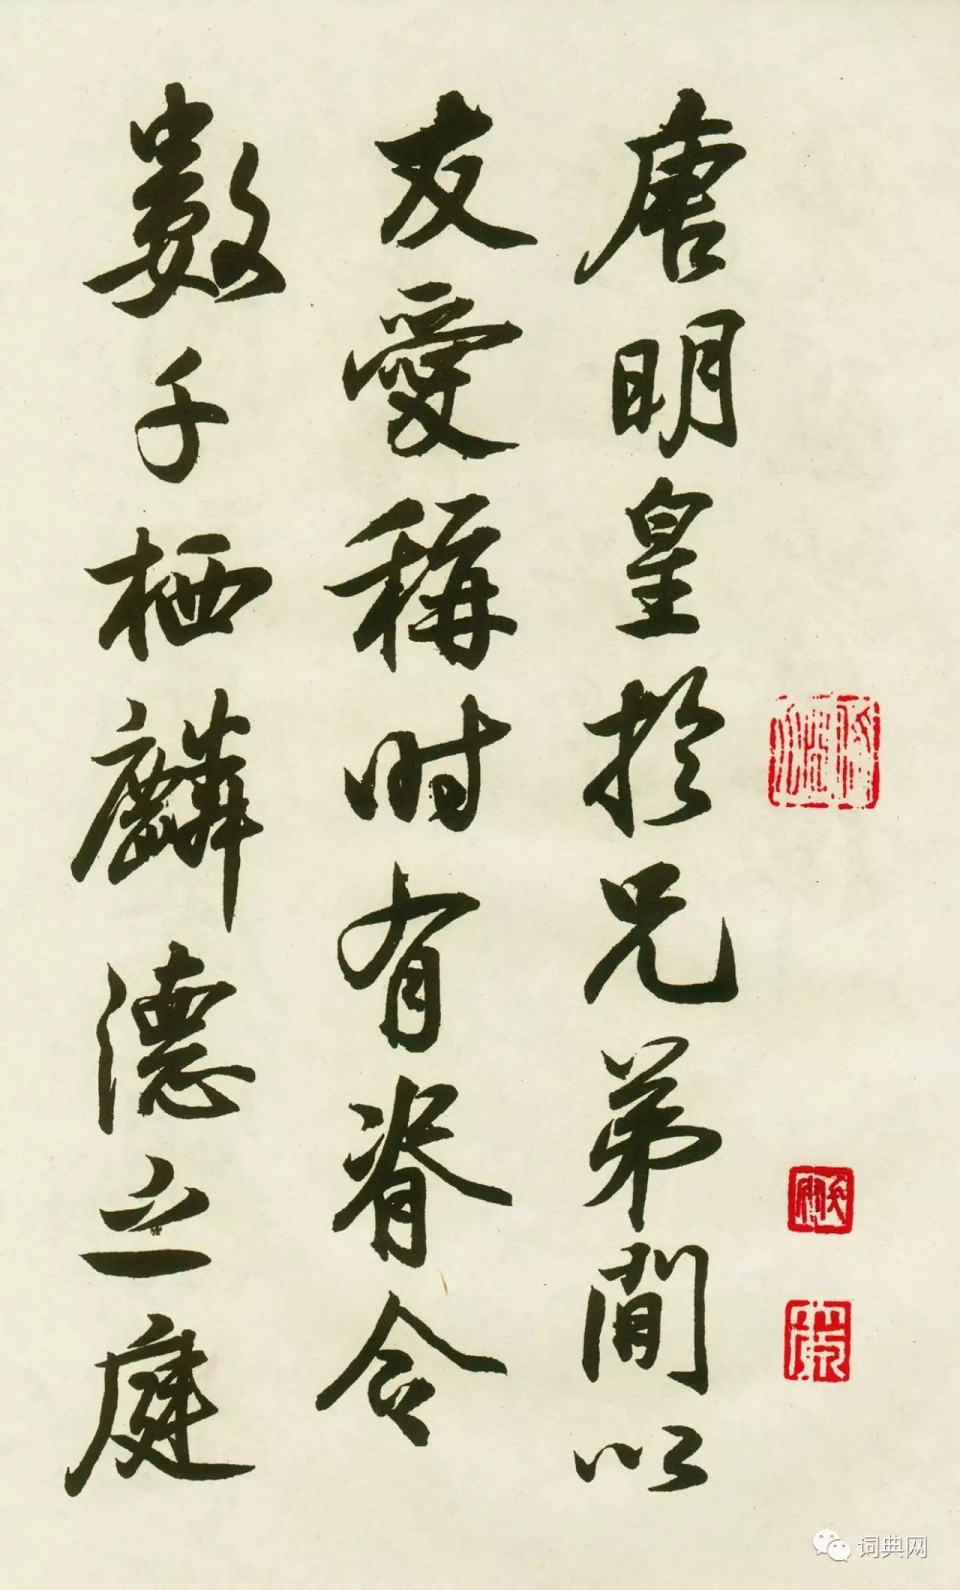 唐明皇於兄弟間以
友愛稱時有脊令
數千栖麟德之庭
词典网